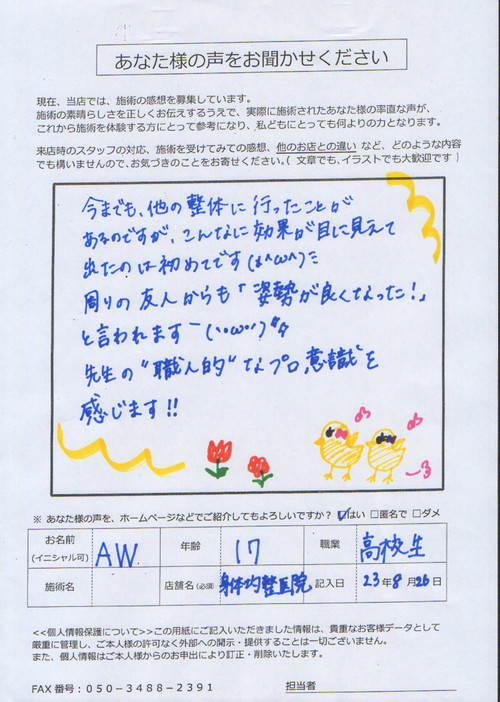 あなた様の声をお聞かせください
現在、当店では、施術の感想を募集しています。
施術の素晴らしさを正しくお伝えするうえで、実際に施術されたあなた様の率直な声が、
これから施術を体験する方にとって参考になり、私どもにとっても何よりの力となります。
来店時のスタッフの対応、施術を受けてみての感想、他のお店との違い など、どのような内容
でも構いませんので、お気づきのことをお寄せください。( 文章でも、イラストでも大歓迎です )
今までも、他の整体に行ったことが
あるのですが、こんなに効果が目に見えて
出たのは初めてです(*^ω^)ﾆ
周りの友人からも「姿勢が良くなった!」
と言われますー(`・ω・´)
先生の"職人的"なプロ意識を
感じます!!
※ あなた様の声を、ホームページなどでご紹介してもよろしいですか? ☑はい □匿名で □ダメ
お名前 (イニシャル可) AW 年齢 17 職業 高校生
施術名 店舗名(必須) 身体均整医院 記入日 23年8月26日
<<個人情報保護について>>この用紙にご記入いただきました情報は、貴重なお客様データとして
厳重に管理し、ご本人様の許可なく外部への開示・提供することは一切ございません。
また、個人情報はご本人様からのお申出により訂正・削除いたします。
FAX 番号:050-3488-2391 担当者